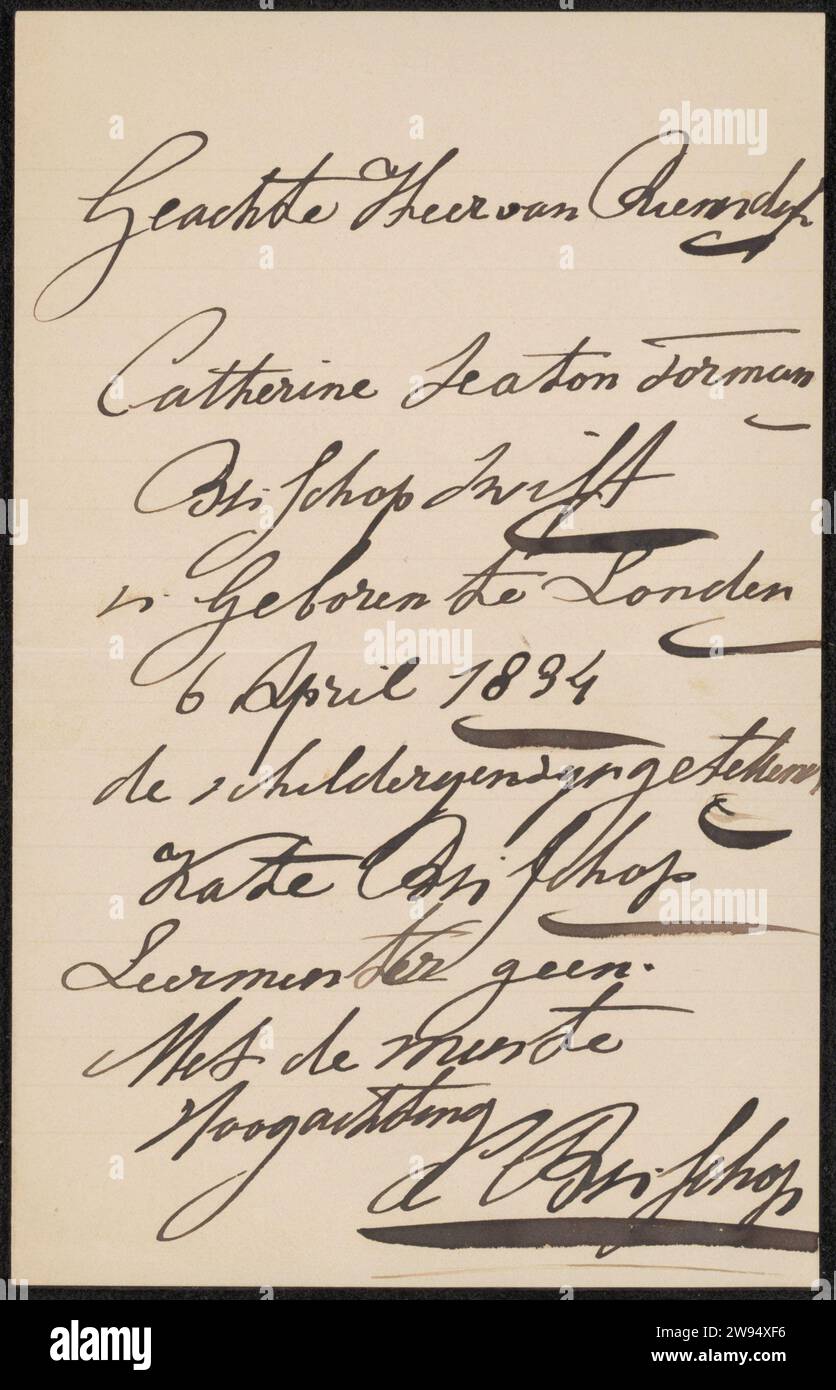 Geachte Heer van Riemsdyk
Catherine Seaton Forman
Bisschop Swift
is Geboren te Londen
6 April 1834
de schilderyen zyn getekend
Kate Bisschop
Leermeester geen.
Met de meeste
Hoogachting
C Bisschop
alamy
Image ID: 2W94XF6
www.alamy.com